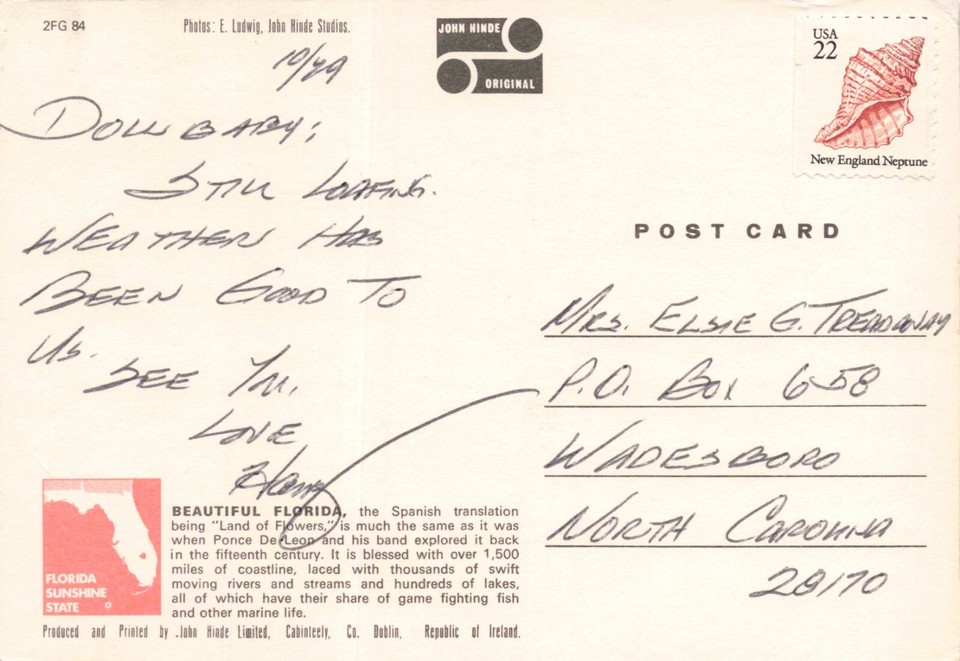 2FG 84
Photos: E. Ludwig, John Hinde Studios.
JOHN HINDE
ORIGINAL
USA
22
New England Neptune
10/29
DOLL BABY;
STILL LOAFING.
WEATHER HAS
BEEN GOOD TO
US.
SEE YOU.
LOVE
POST CARD
MRS. ELSIE G. TREADAWAY
P.O. BOX 658
WADESBORO
NORTH CAROLINA
28170
BEAUTIFUL FLORIDA, the Spanish translation
being "Land of Flowers," is much the same as it was
when Ponce De Leon and his band explored it back
in the fifteenth century. It is blessed with over 1,500
miles of coastline, laced with thousands of swift
moving rivers and streams and hundreds of lakes,
all of which have their share of game fighting fish
and other marine life.
FLORIDA
SUNSHINE
STATE
Produced and Printed by John Hinde Limited, Cabinteely, Co. Dublin, Republic of Ireland.